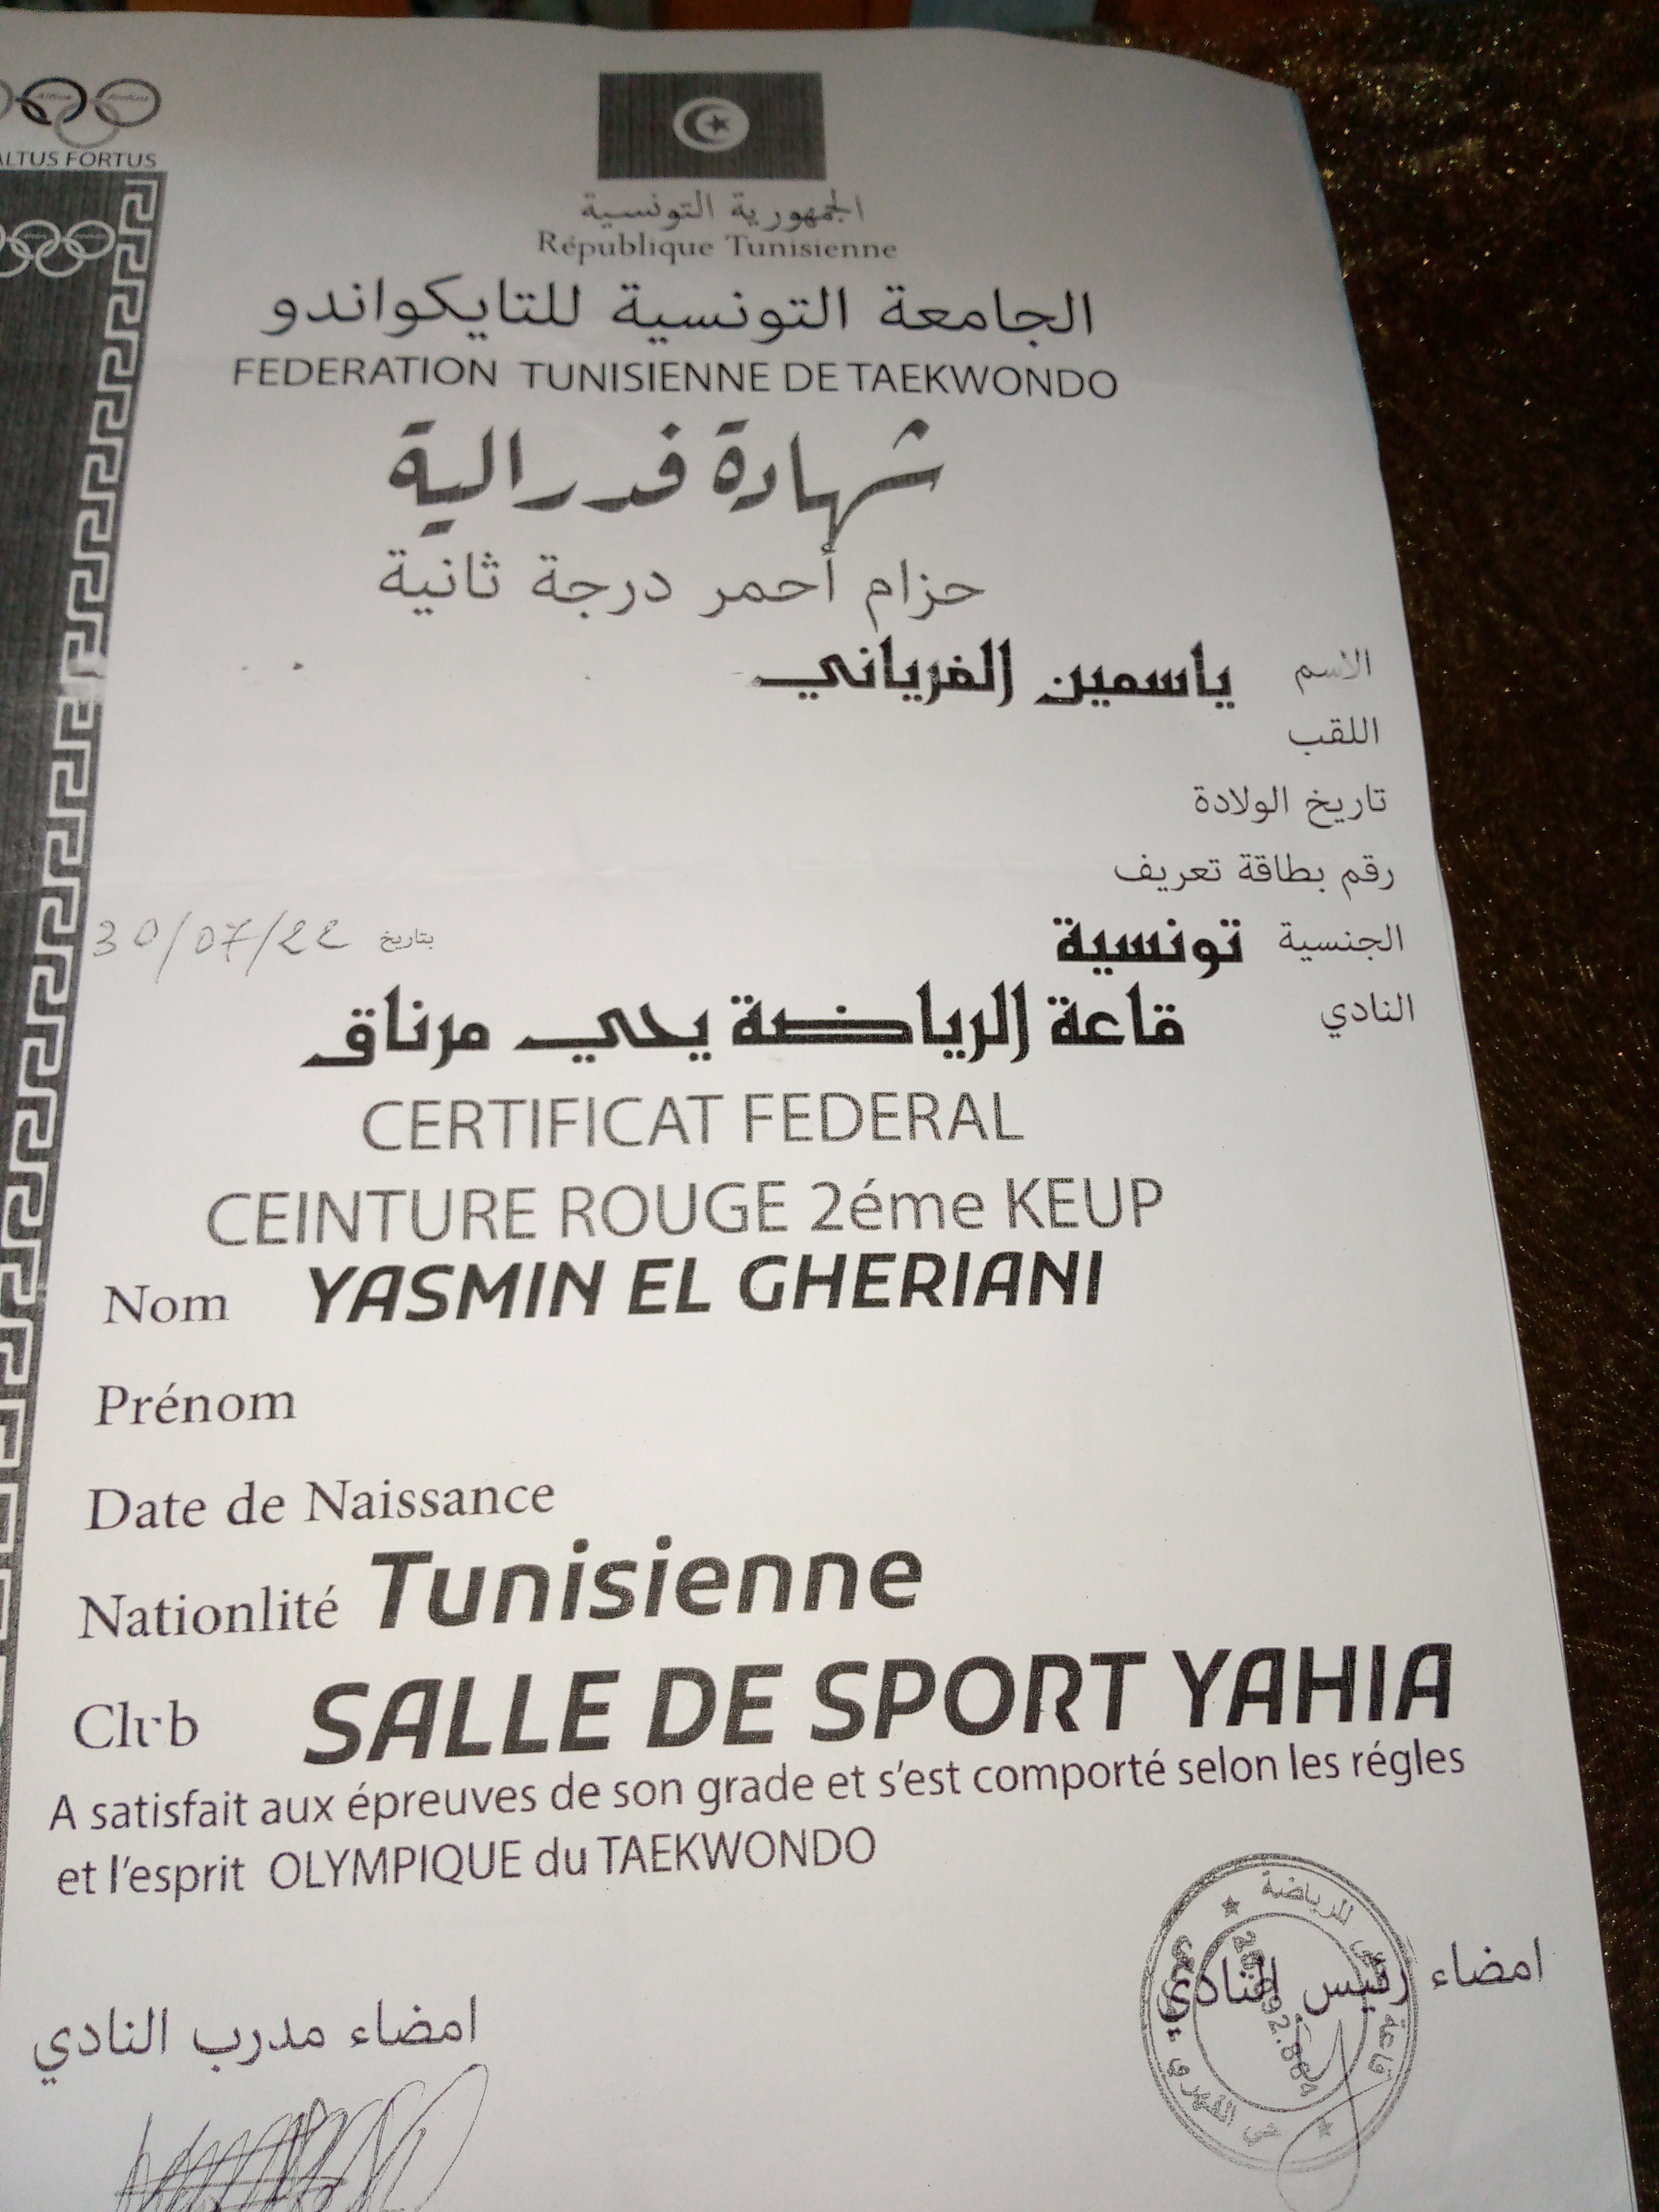 ALTUS FORTUS
الجمهورية التونسية
République Tunisienne
الجامعة التونسية للتايكواندو
FEDERATION TUNISIENNE DE TAEKWONDO
شهادة فدرالية
حزام أحمر درجة ثانية
الاسم ياسمين الغرياني
اللقب
تاريخ الولادة
رقم بطاقة تعريف
الجنسية تونسية بتاريخ 30/07/22
النادي قاعة الرياضة يحي مرناق
CERTIFICAT FEDERAL
CEINTURE ROUGE 2éme KEUP
Nom YASMIN EL GHERIANI
Prénom
Date de Naissance
Nationlité Tunisienne
Club SALLE DE SPORT YAHIA
A satisfait aux épreuves de son grade et s'est comporté selon les régles
et l'esprit OLYMPIQUE du TAEKWONDO
امضاء رئيس النادي
امضاء مدرب النادي